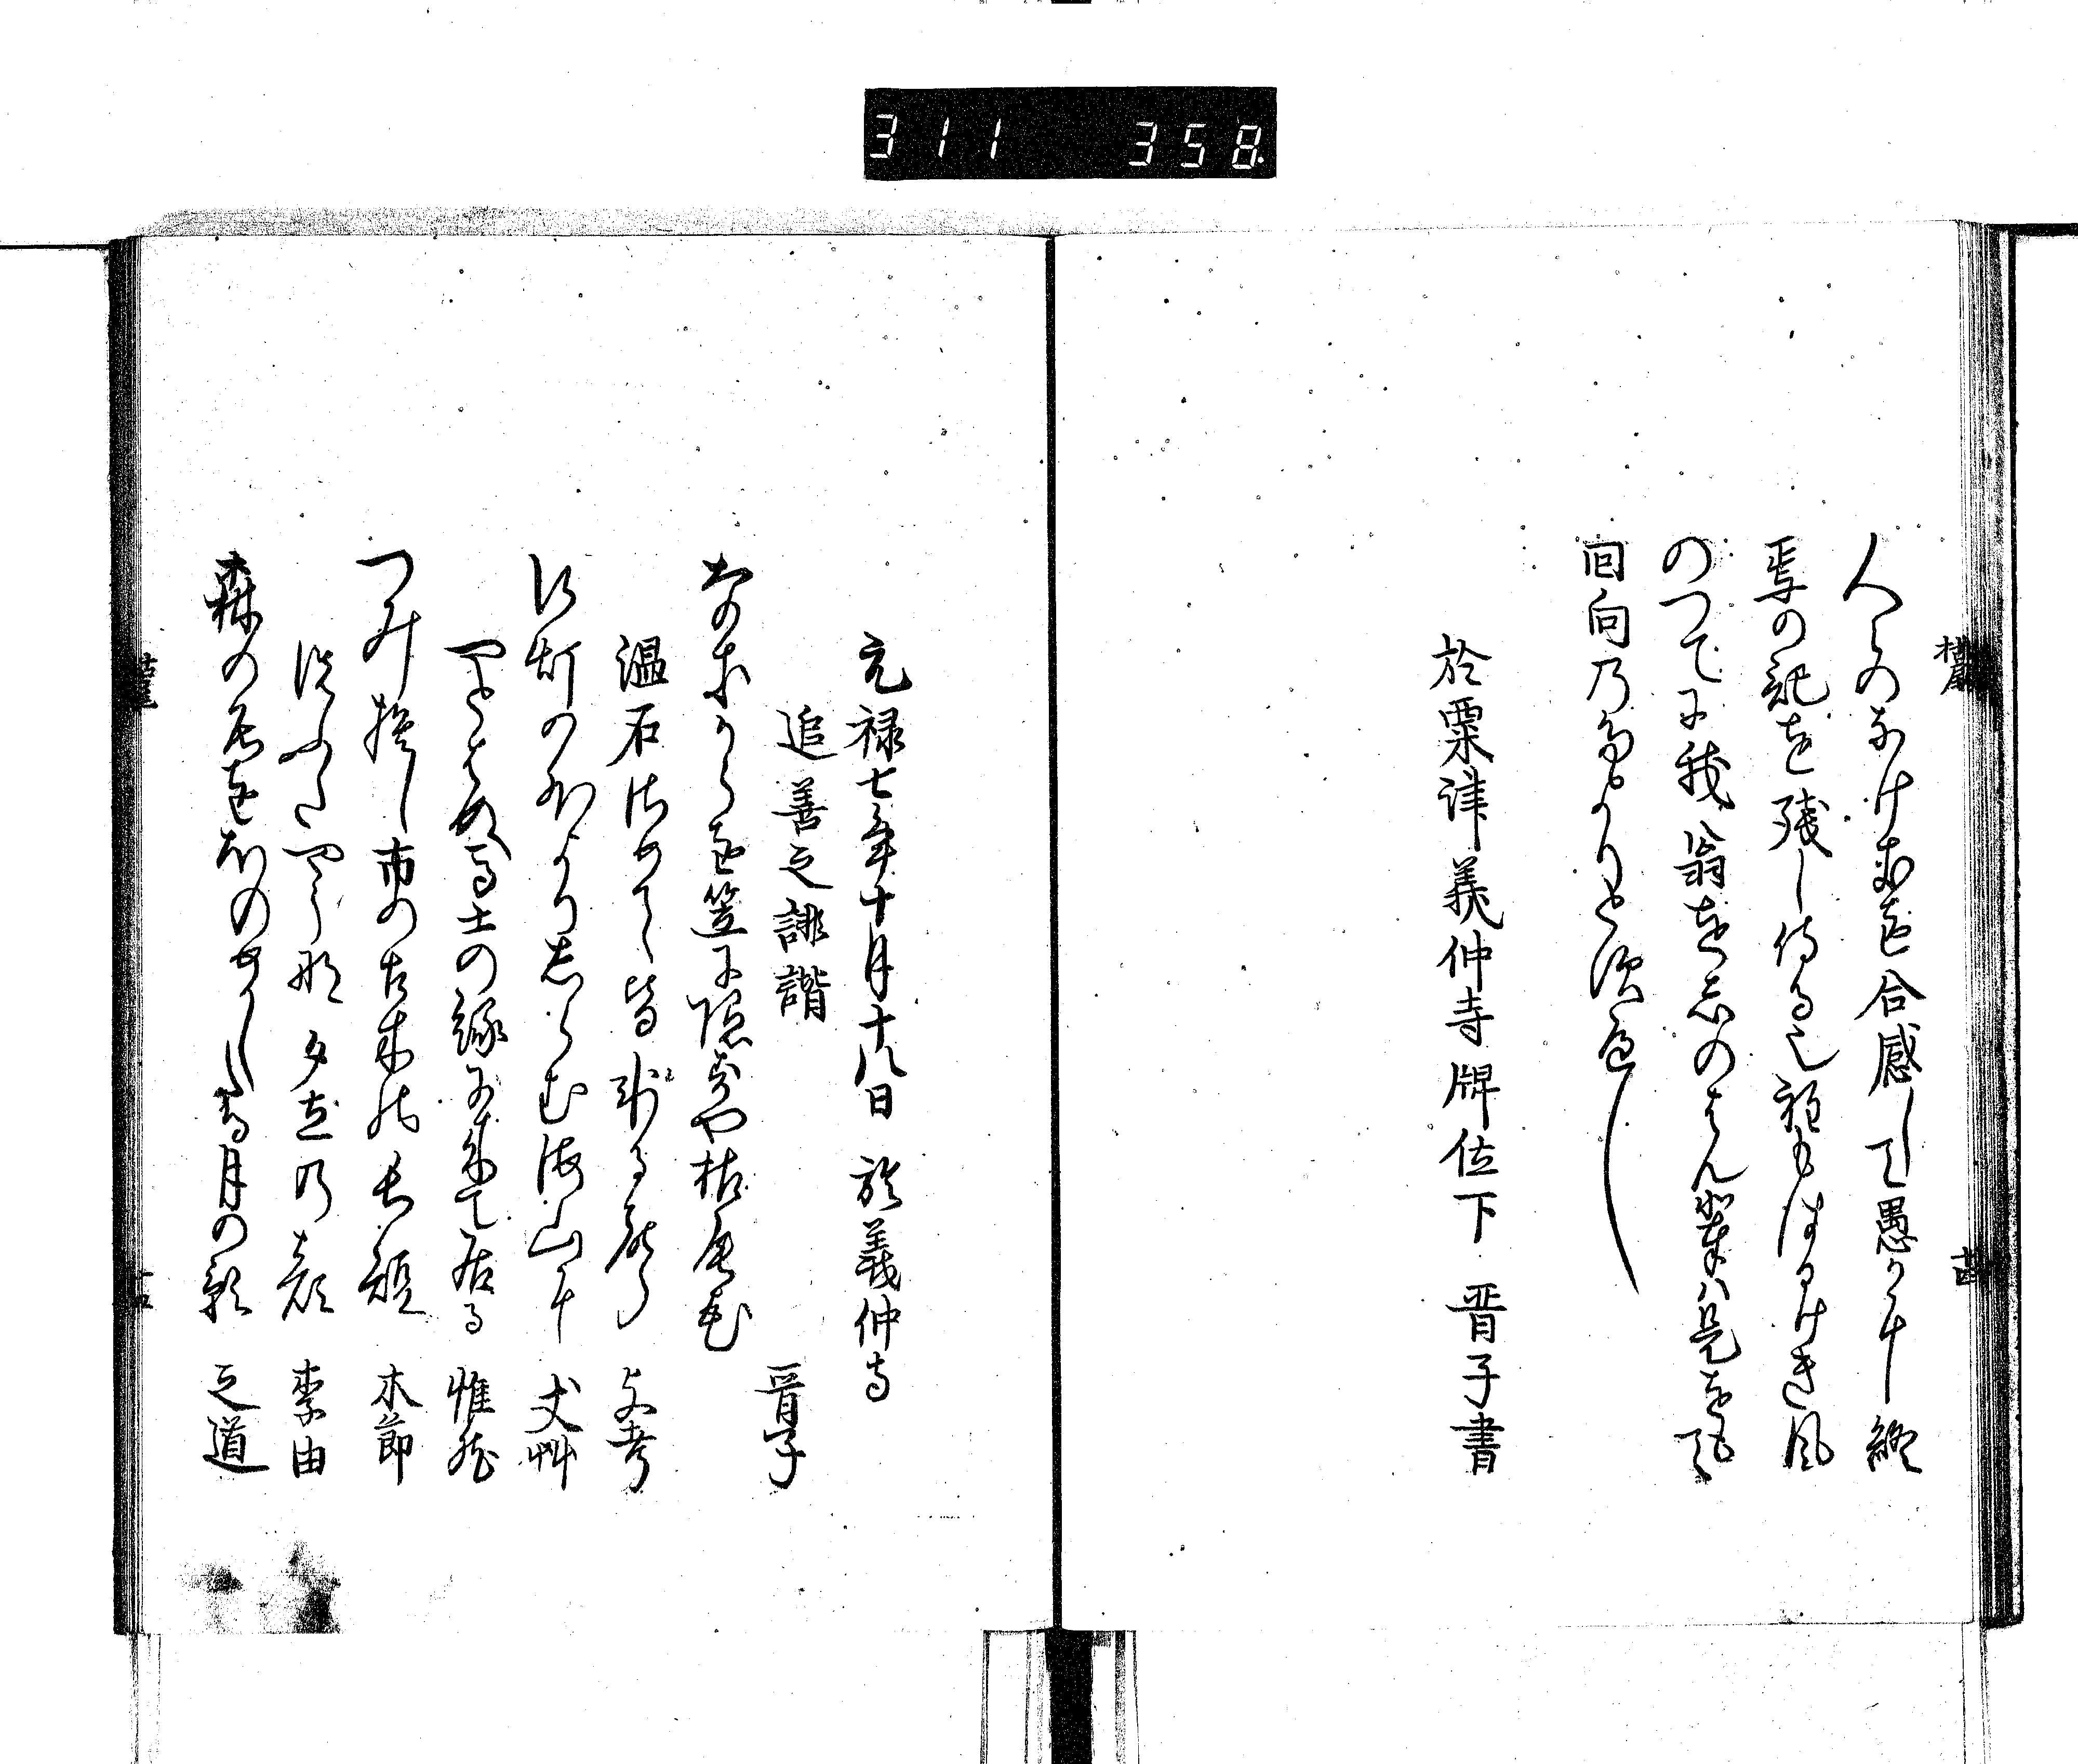 311 358
人々のなげきを合感して愚かに終
焉の記を残し侍る也程もはるけき風
のつてに我翁をしのばん輩は是をもて
回向のたよりとすべし
於粟津義仲寺牌位下 晋子書
元禄七年十月十八日 於義仲寺
追善之誹諧
なきがらを笠に隠すや枯尾花 晋子
温石さめて皆氷る聲 支考
行灯の外よりしらむ海山に 丈艸
やとはぬ馬士の縁に来て居る 惟然
つみ捨し市の古木の長短 木節
洗ふたやうな夕立の顔 李由
森の名をほのめかしたる月の影 之道